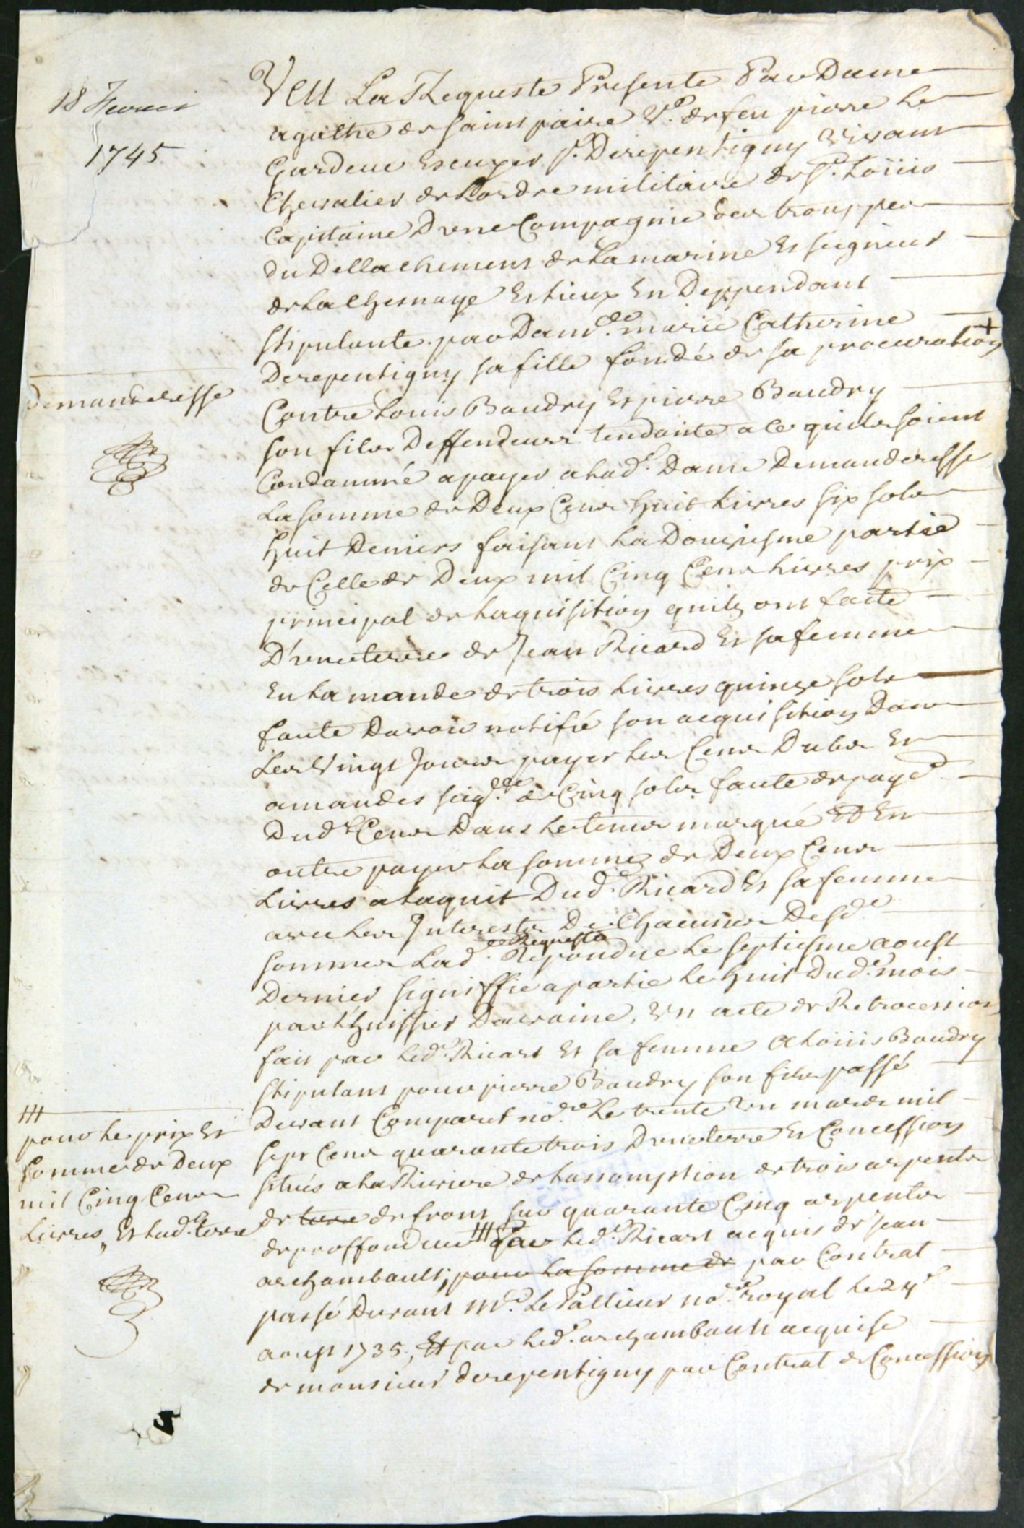 18 Fevrier
1745
Veu La Requeste Presente Par Dame
agathe de Saint paire Ve. de feu pierre Le
Gardeur Escuyer Sr. Derepentigny vivant
Chevalier de Lordre militaire de St. Loüis
Capitaine Dune Compagnie des trouppes
du Dettachement de La marine Et seigneur
de Lachesnaye Et Lieux En Deppendant
stipulante par Damlle. marie Catherine
Derepentigny sa fille fondé de sa procuration +
Demanderesse
Contre Louis Baudry Et pierre Baudry
son fils Deffendeurs tendante a ce quils soient
Condamné a payer a Lad. Dame Demanderesse
La somme de Deux Cens huit Livres six sols
huit Deniers faisant La Douziesme partie
de Celle de Deux mil Cinq Cens Livres prix
principal de Laquisition quils ont faite
D'une terre de Jean Ricard Et sa femme
En Lamande de trois Livres quinze sols
faute Davoir notifié son acquisition Dans
Les Vingt Jours payer Les Cens Dubs Et
amandes seiglle. de Cinq sols faute de payer
Dud. Cens Dans Le tems marqué Et En
outre payer La somme de Deux Cens
Livres a Laquit Dud. Ricard Et sa femme
avec Les Interests De Chacunes Desd.
sommes Lad. Requeste Repondue Le septiesme aoust
Dernier signiffié a partie Le huit Dud. mois
par Lhuissier Decoine, Un acte de Retrocession
fait par Led. Ricart Et sa femme a Loüis Baudry
stipulant pour pierre Baudry son fils passé
Devant Comparet nore. Le trente Un mars mil
sept Cens quarante trois Dune terre Et Concession
située a La Riviere de Lassomption de trois arpents
de terre de front sur quarante Cinq arpents
de proffondeur ## Par Led. Ricart acquis de Jean
archambault, pour La somme de par Contrat
passé Devant Me. Le Pallieur nore. royal Le 24e
aoust 1735, Et par Led. archambault acquise
de monsieur Derepentigny par Contrat de Concession
##
pour Le prix Et
somme de Deux
mil Cinq Cens
Livres, Et Lad. terre